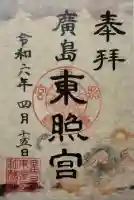 奉拝
廣島東照宮
令和六年四月十五日